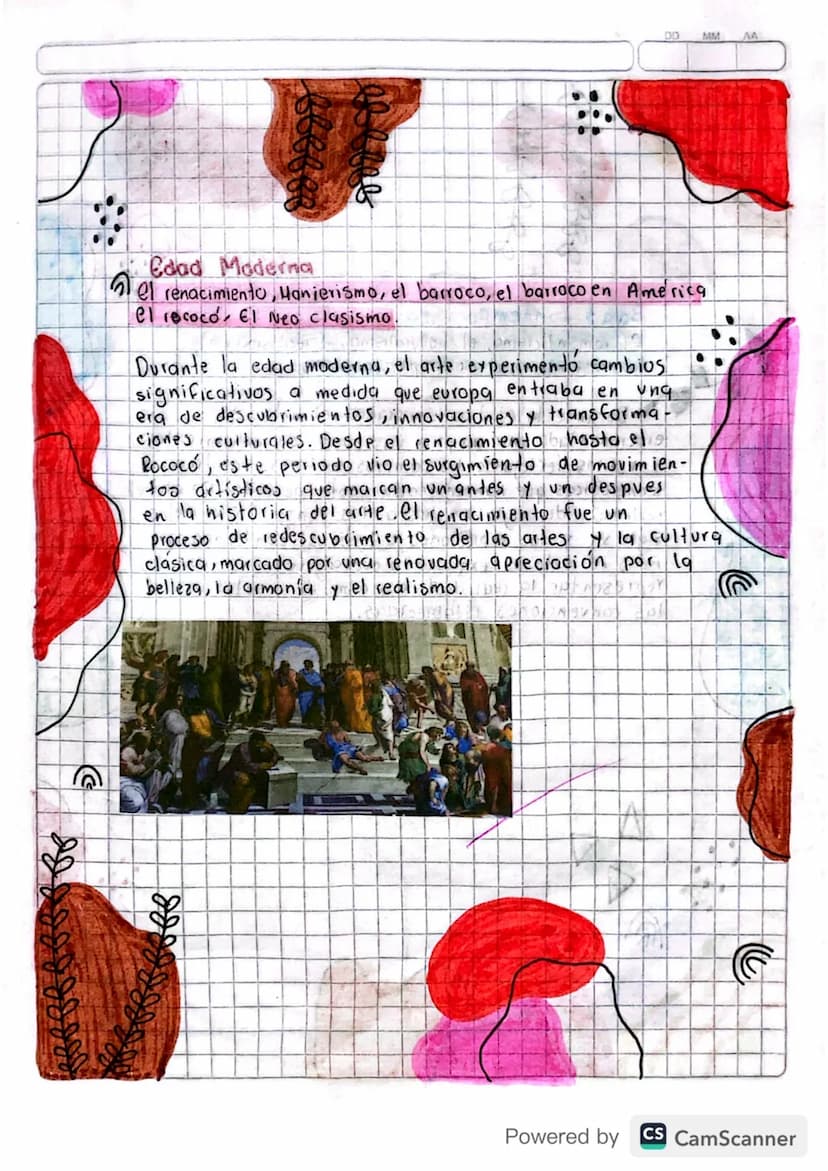 DD MM AA
Edad Moderna
El renacimiento, Manierismo, el barroco, el barroco en América
el rococó, El Neo clasismo.
Durante la edad moderna, el arte experimentó cambios
significativos a medida que europa entraba en una
era de descubrimientos, innovaciones y transforma-
ciones culturales. Desde el renacimiento hasta el
Rococó, este periodo vio el surgimiento de movimien-
tos artísticos que marcan un antes y un despues
en la historia del arte. el renacimiento fue un
proceso de redescubrimiento de las artes y la cultura
clásica, marcado por una renovada apreciación por la
belleza, la armonía y el realismo.
Powered by CS CamScanner